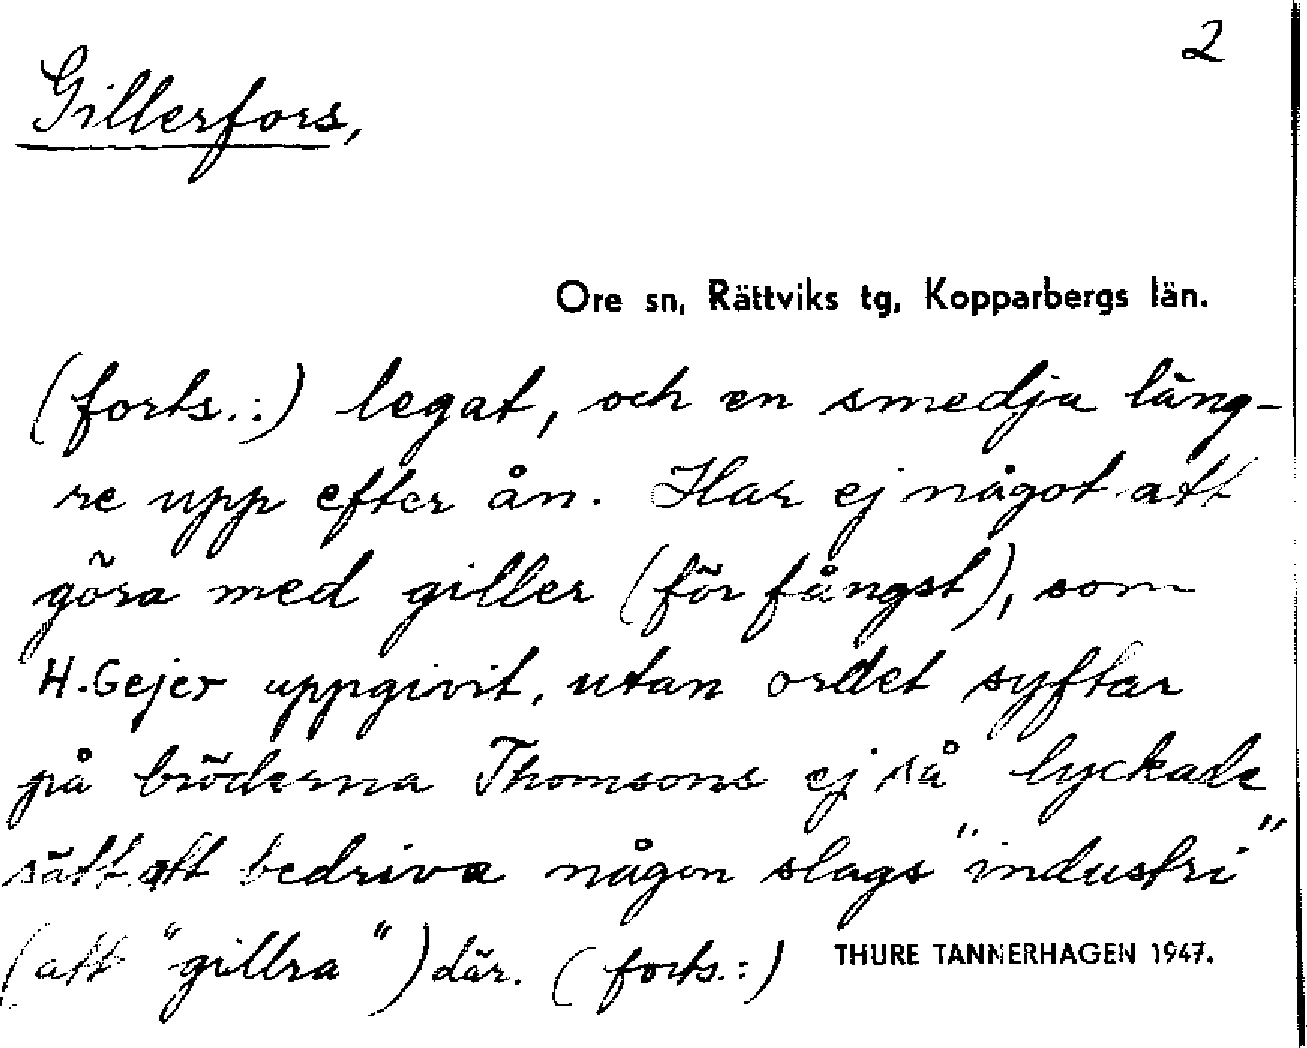 2
Gillerfors,
Ore sn, Rättviks tg, Kopparbergs län.
(forts.:) legat, och en smedja läng-
re upp efter ån. Har ej något att
göra med giller (för fångst), som
H.Gejer uppgivit, utan ordet syftar
på bröderna Thomsons ej så lyckade
sätt att bedriva någon slags "industri"
(att "gillra") där. (forts.:)
THURE TANNERHAGEN 1947.